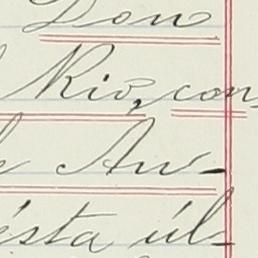 Don
Rio, con
An-
ésta úl-